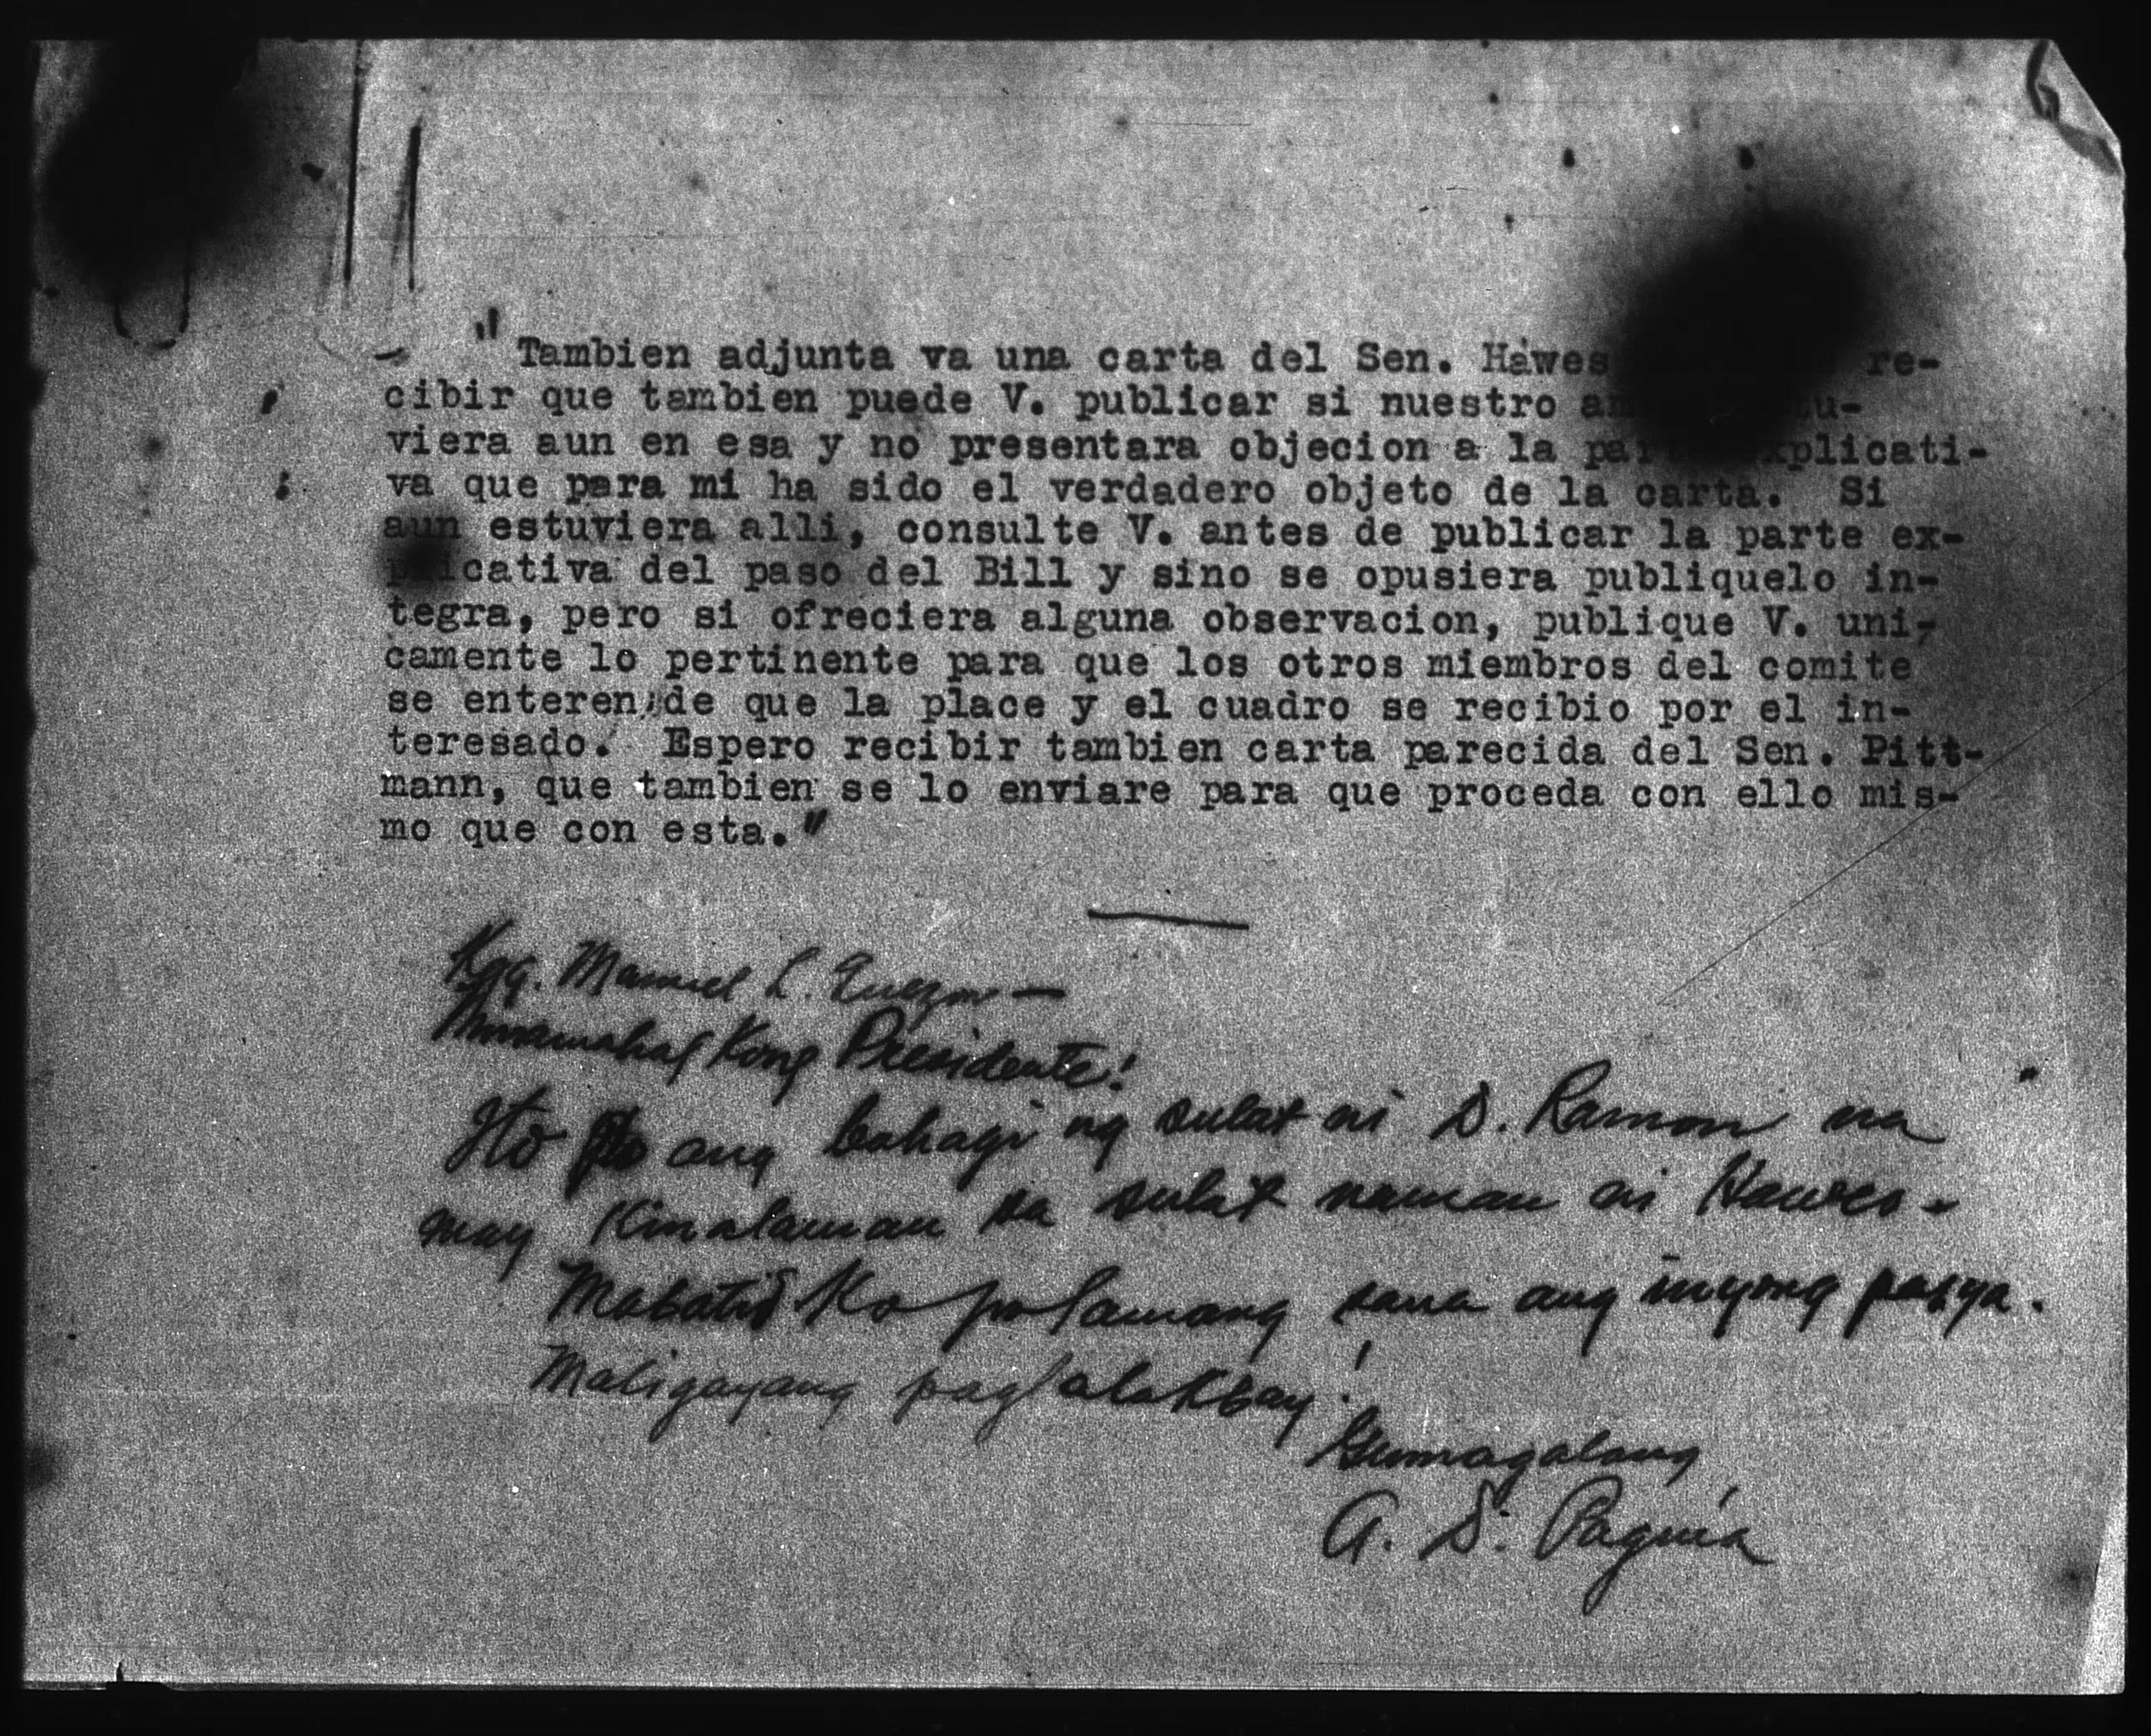 "Tambien adjunta va una carta del Sen. Hawes re-
cibir que tambien puede V. publicar si nuestro
viera aun en esa y no presentara objecion a la
va que para mi ha sido el verdadero objeto de la carta. Si
aun estuviera alli, consulte V. antes de publicar la parte ex-
plicativa del paso del Bill y sino se opusiera publiquelo in-
tegra, pero si ofreciera alguna observacion, publique V. uni-
camente lo pertinente para que los otros miembros del comite
se enteren de que la place y el cuadro se recibio por el in-
teresado. Espero recibir tambien carta parecida del Sen. Pitt-
mann, que tambien se lo enviare para que proceda con ello mis-
mo que con esta."
Kgg. Manuel L. Quezon —
Minamahal Kong Presidente!
Ito po ang bahagi ng sulat ni D. Ramon na
may Kinalaman sa sulat naman ni Hawes -
Mabatid Ko po lamang sana ang inyong pasya.
Maligayang paglalakbay!
Gumagalang
A. D. Paguia